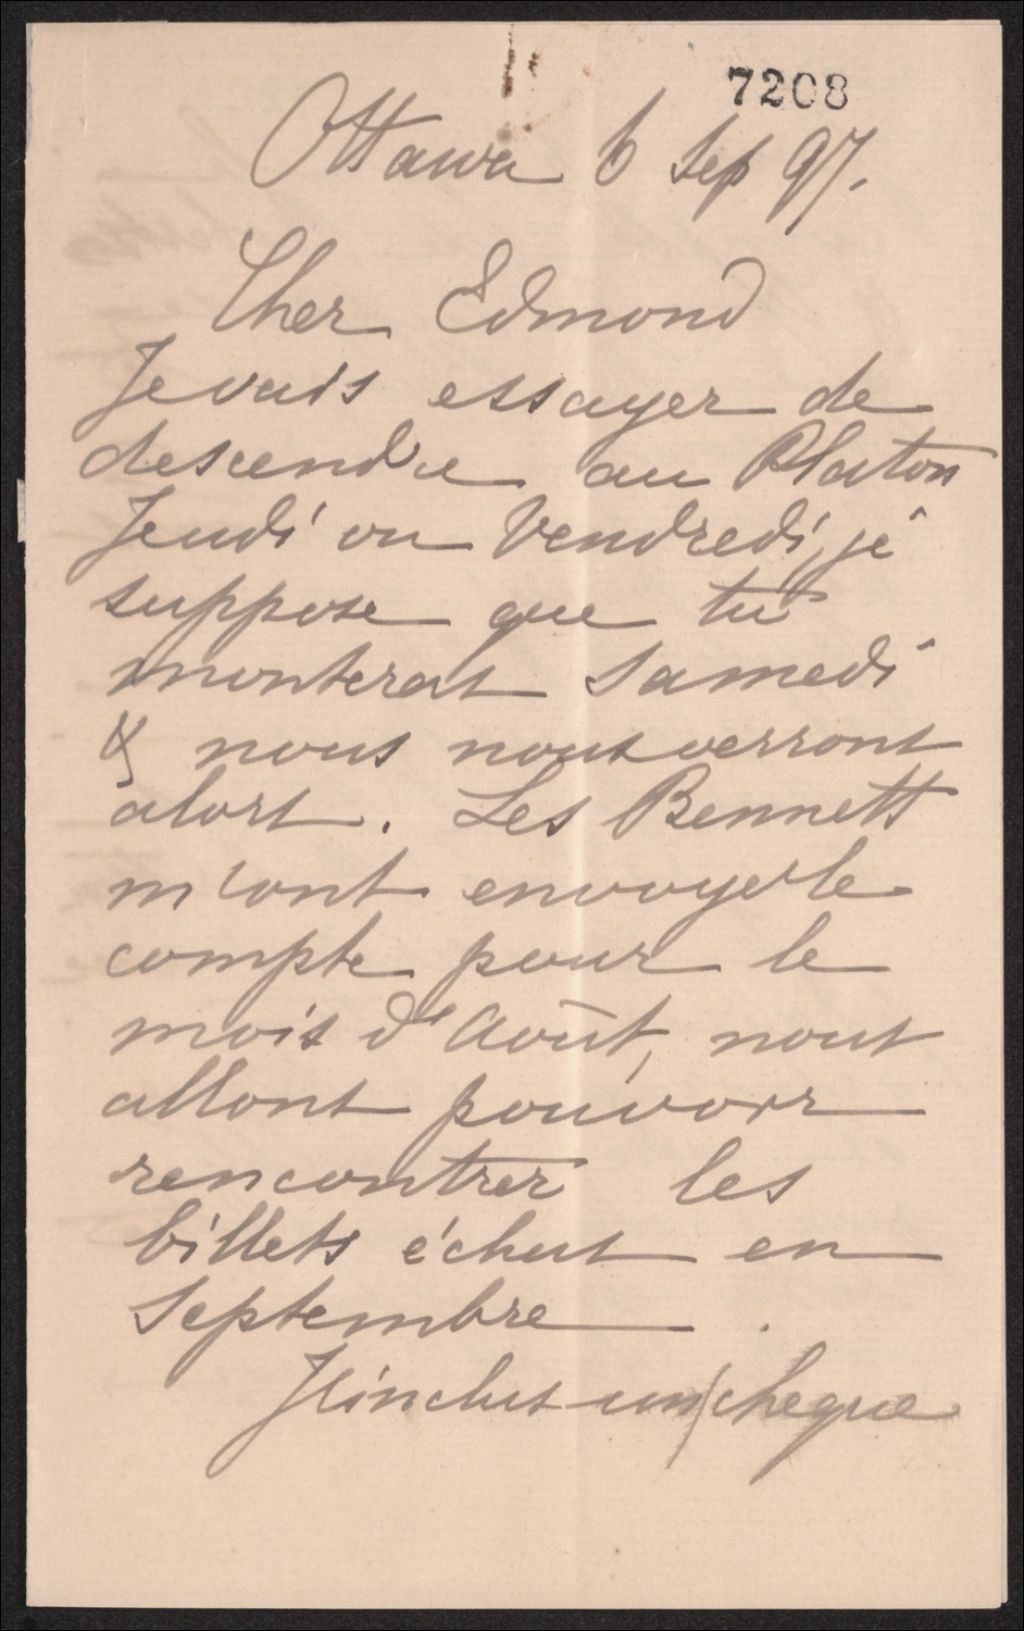 7208
Ottawa 6 Sep 97.
Cher Edmond
Je vais essayer de
descendre au Platon
Jeudi ou Vendredi, je
suppose que tu
monteras Samedi
& nous nous verrons
alors. Les Bennett
m'ont envoyé le
compte pour le
mois d'Août, nous
allons pouvoir
rencontrer les
billets échus en
Septembre.
J'inclus un cheque